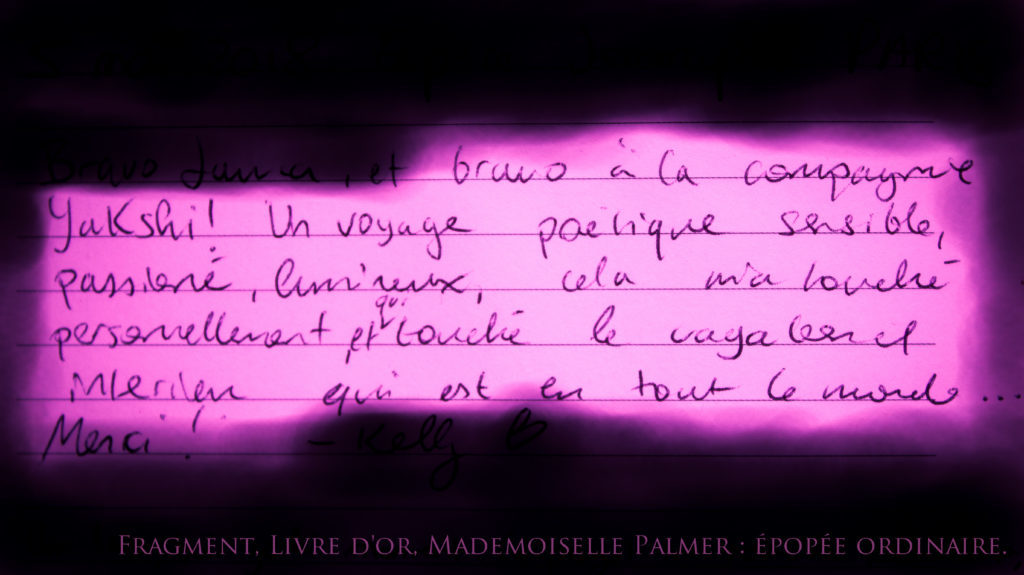 Bravo et bravo à la compagnie
Yakshi! Un voyage poétique sensible,
passionné, lumineux, cela m'a touché
personnellement, et qui touche le vagabond
intérieur qui est en tout le monde...
Merci! - Kelly B
Fragment, Livre d'or, Mademoiselle Palmer : épopée ordinaire.